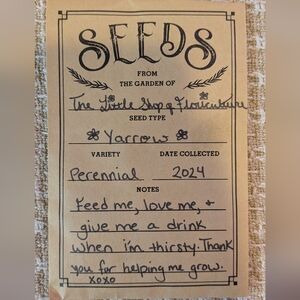 SEEDS
FROM
THE GARDEN OF
The Little Shop of Floriculture
SEED TYPE
Yarrow
VARIETY DATE COLLECTED
Perennial 2024
NOTES
Feed me, love me, +
give me a drink
when i'm thirsty. Thank
you for helping me grow.
xoxo